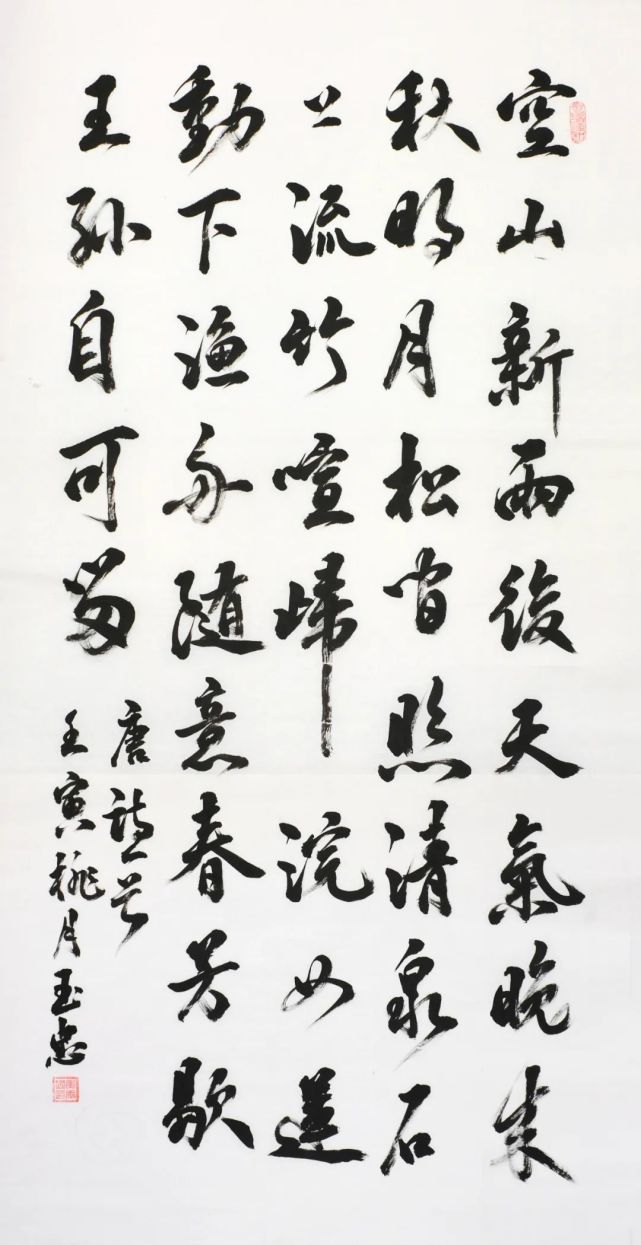 空山新雨後天氣晚来
秋明月松间照清泉石
上流竹喧歸浣女蓮
動下漁舟随意春芳歇
王孫自可留
唐詩一首
壬寅桃月玉忠